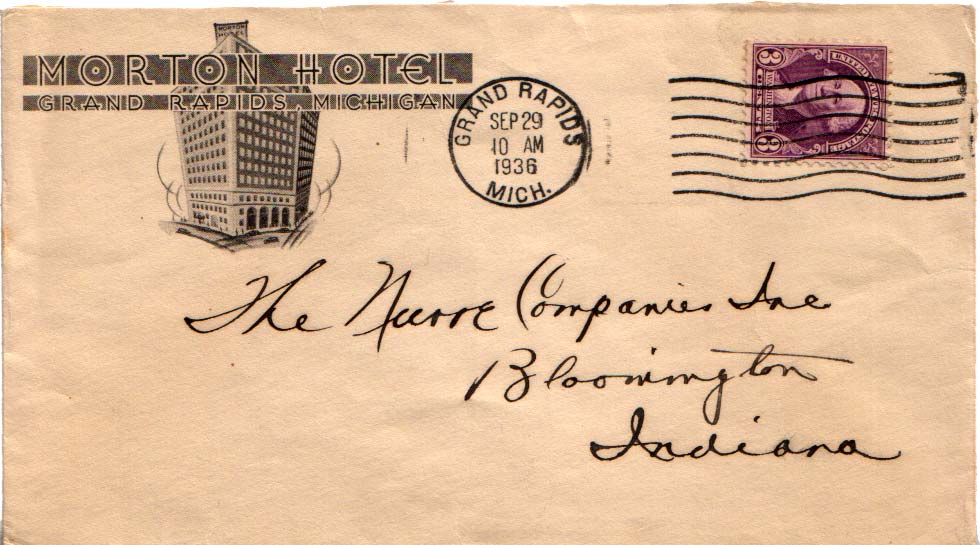 MORTON HOTEL
GRAND RAPIDS, MICHIGAN
GRAND RAPIDS
SEP 29
10 AM
1936
MICH.
3 3
The Nurre Companies Inc
Bloomington
Indiana